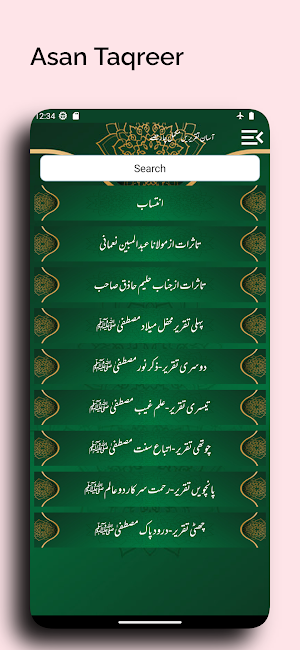 Asan Taqreer
12:34
آسان تقریریں مکمل چار حصے
Search
انتساب
تاثرات از مولانا عبدالمبین نعمانی
تاثرات از جناب حلیم حاذق صاحب
پہلی تقریر محفل میلاد مصطفیٰ ﷺ
دوسری تقریر-ذکر نور مصطفیٰ ﷺ
تیسری تقریر-علم غیب مصطفیٰ ﷺ
چوتھی تقریر-اتباع سنت مصطفیٰ ﷺ
پانچویں تقریر-رحمت سرکار دوعالم ﷺ
چھٹی تقریر-درود پاک مصطفیٰ ﷺ